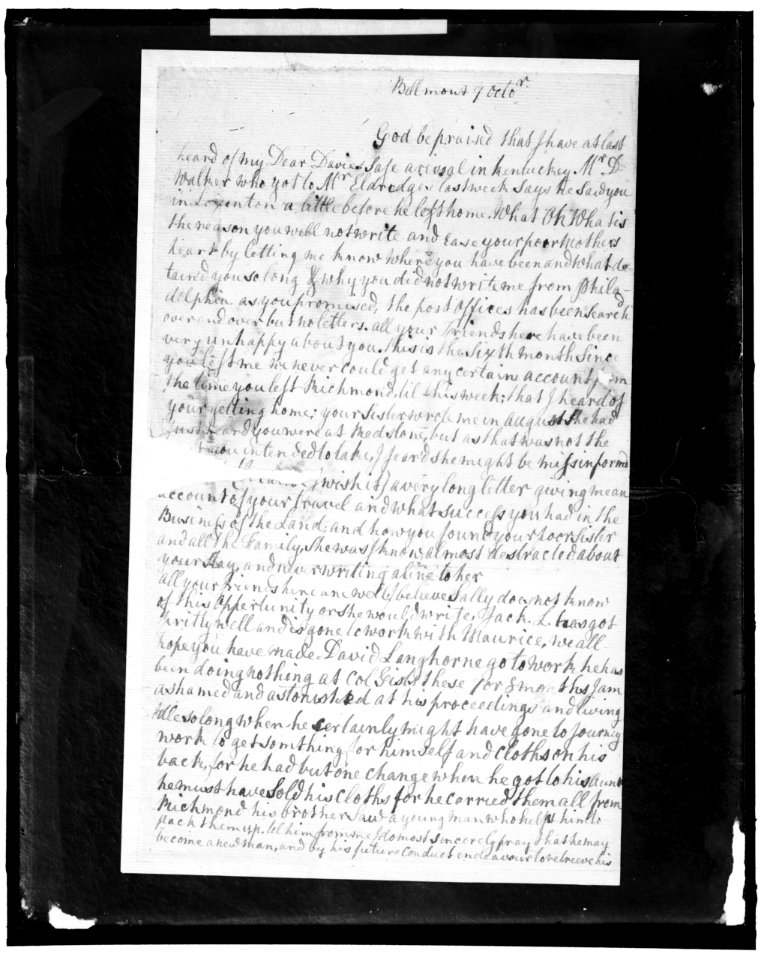 Bellmont 9 Octo.r
God be praised that I have at last
heard of my Dear Davies Safe arival in Kentuckey Mr. D
Walker who got to Mr Eldredges last week says he saw you
in Lexenton a little before he left home. What Oh What is
the reason you will not write and Ease your poor Mothers
heart by letting me know where you have been and what de=
taind you so long & why you did not write me from Phila-
dolphia as you promised, the post offices has been search
over and over but no letters. all your friends here have been
very unhappy about you. this is the sixth month since
you left me we never could get any certain account from
the time you left Richmond, til this week; that I heard of
your getting home; your sister wrote me in August she had
just heard you were at Redstone, but as that was not the
you intended to take, I feard she might be missinformd
I wish it) a very long letter giving me an
account of your travel and what success you had in the
Business of the Land; and how you found your Poor Sister
and all the Family, She was I know, almost destracted about
your Stay, and never writing a line to her
all your friends here are well, I believe Sally does not know
of this Oppertunity or she would write, Jack. L. has got
pritly well and is gone to work with Maurice, we all
hope you have made David Langhorne go to work he has
been doing nothing at Col Gists these 7 or 8 months, I am
ashamed and astonished at his proceedings and living
Idle so long when he certainly might have gone to Journey
work to get somthing for himself and cloths on his
back, for he had but one change when he got to his Aunt
he must have Sold his Cloths for he carried them all from
Richmond his brother saw a young man who helpt him to
pack them up. tel him from me I do most sincerely pray that he may
become a new man, and by his future conduct endeavour to retrieve his